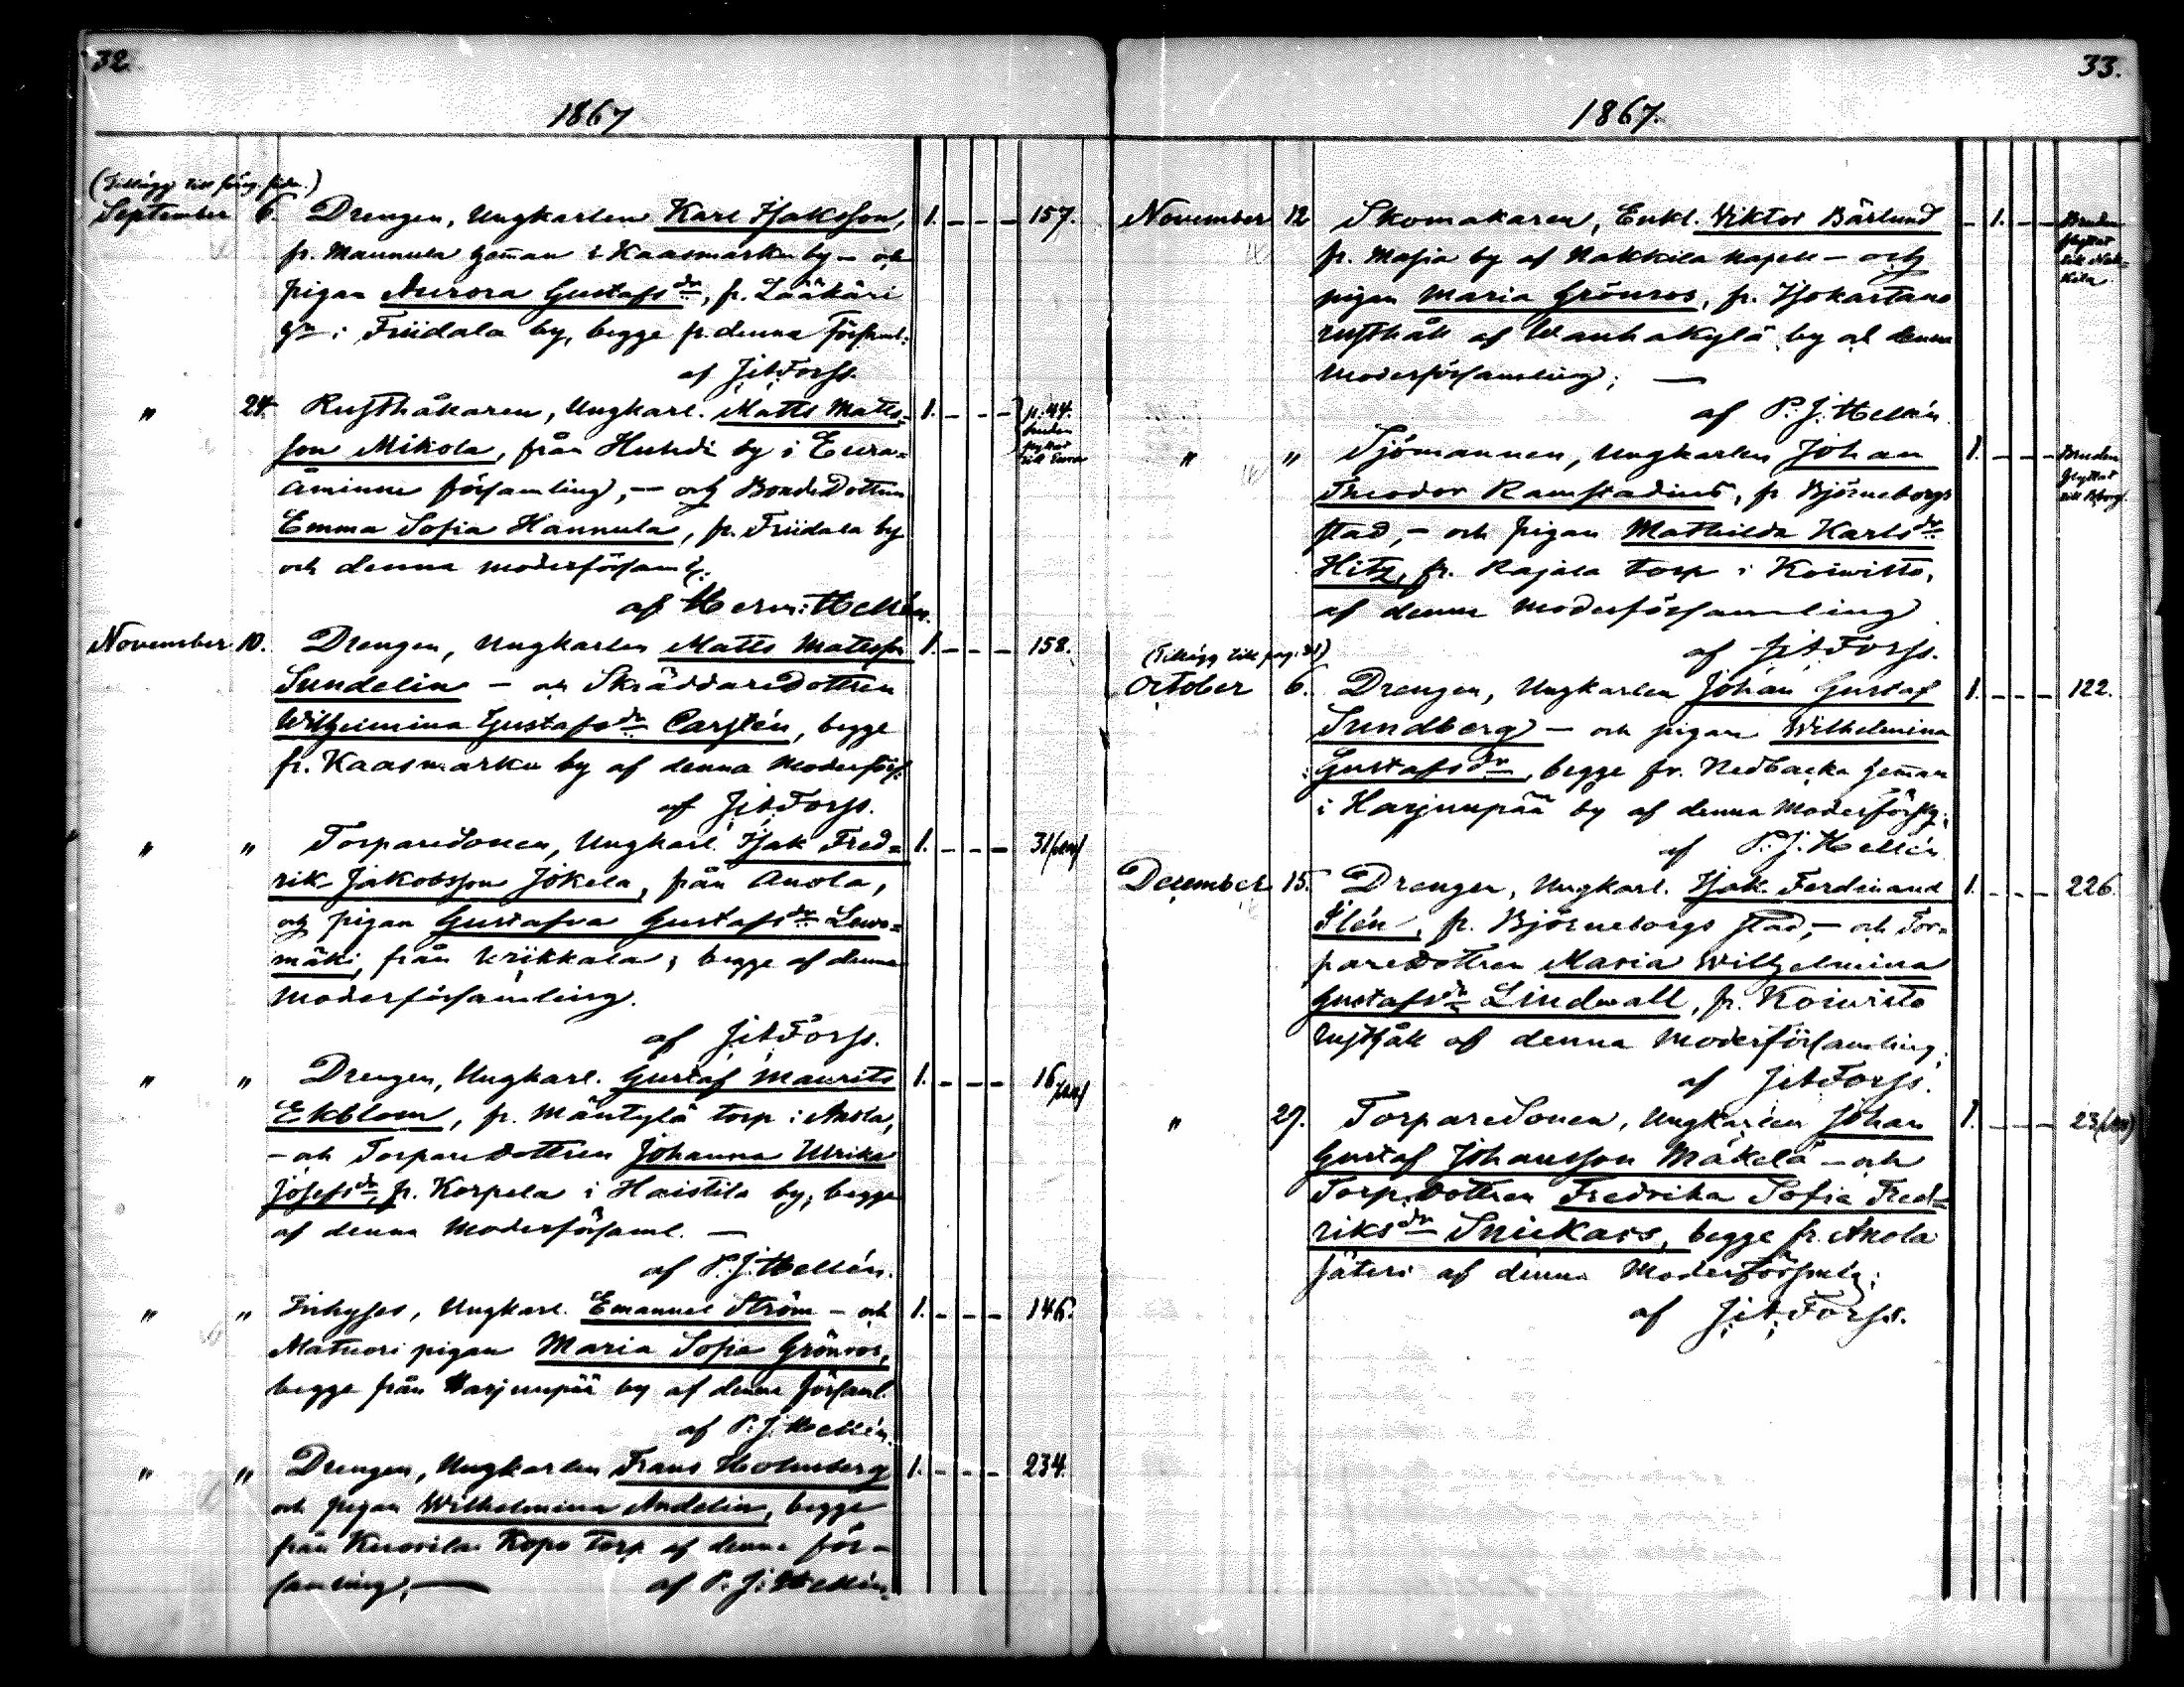 32.
1867
(Tillägg till föreg. sida.)
September 6. Drengen, Ungkarlen Karl Isaksson, 1. – – – 157.
fr. Mannula heman i Kaasmarku by – och
pigan Aurora Gustafsdr, fr. Lääkäri
gn i Friidala by, begge fr. denna församl.
af J:A:Forss.
" 24. Rusthållaren, Ungkarl. Matts Matts- 1. – – – p. 44.
son Mikola, från Huhdi by i Eura- bruden flyttat till Eura
åminne församling, – och BondeDottren
Emma Sofia Hannula, fr. Friidala by
och denna moderförsaml.
af Herm: Hellén.
November 10. Drengen, Ungkarlen Matts Matsson 1. – – – 158.
Sundelin – och SkräddareDottren
Wilhelmina Gustafsdr Carstén, begge
fr. Kaasmarku by af denna Moderförs.
af J:A:Forss.
" " TorpareSonen, Ungkarl. Isak Fred- 1. – – – 31
rik Jakobsson Jokela, från Anola,
och pigan Gustafva Gustafsdr Lewo-
mäki, från Krikkala; begge af denna
Moderförsamling.
af J:A:Forss.
" " Drengen, Ungkarl. Gustaf Maurits 1. – – – 16
Ekblom, fr. Mäntylä torp i Anola,
– och TorpareDottren Johanna Ulrika
Josefsdr fr. Korpela i Haistila by; begge
af denna Moderförsaml. –
af P. J. Hellén.
" " Inhyses, Ungkarl. Emanuel Ström – och 1. – – – 146.
Matuori pigan Maria Sofia Grönroos,
begge från Harjunpää by af denna församl.
af P. J. Hellén.
" " Drengen, Ungkarlen Frans Holmberg 1. – – – 234.
och pigan Wilhelmina Andelin, begge
från Kuosila Kopo torp af denna för-
samling; – af P. J. Hellén.
33.
1867.
November 12 Skomakaren, Enkl. Wiktor Bärlund – 1. – – Bruden
fr. Masia by af Nakkila Kapell – och flyttat till Nak-
pigan Maria Grönroos, fr. Isokartano kila
rusthåll af Wanhakylä by och denna
Moderförsamling; –
af P. J. Hellén.
" " Sjömannen, Ungkarlen Johan 1. – – – Bruden
Theodor Ramstadius, fr. Björneborgs flyttat till B:borg.
stad, – och pigan Mathilda Karlsdr
Hitz, fr. Rajala torp i Koiwisto,
af denna Moderförsamling
af J:A:Forss.
(Tillägg till pag. 31)
October 6. Drengen, Ungkarlen Johan Gustaf 1. – – – 122.
Sundberg – och pigan Wilhelmina
Gustafsdr, begge fr. Nedbacka heman
i Harjunpää by af denna Moderförsg.
af P. J. Hellén
December 15. Drengen, Ungkarl. Isak Ferdinand 1. – – – 226.
Ilén, fr. Björneborgs stad, – och Tor-
pareDottren Maria Wilhelmina
Gustafsdr Lindwall, fr. Koiwisto
rusthåll af denna Moderförsamling.
af J:A:Forss.
" 27. TorpareSonen, Ungkarlen Johan 1. – – – 23
Gustaf Johansson Mäkelä – och
Torp.Dottren Fredrika Sofia Fred-
riksdr Snickars, begge fr. Anola
säteri af denna Moderförsamlg.
af J:A:Forss.